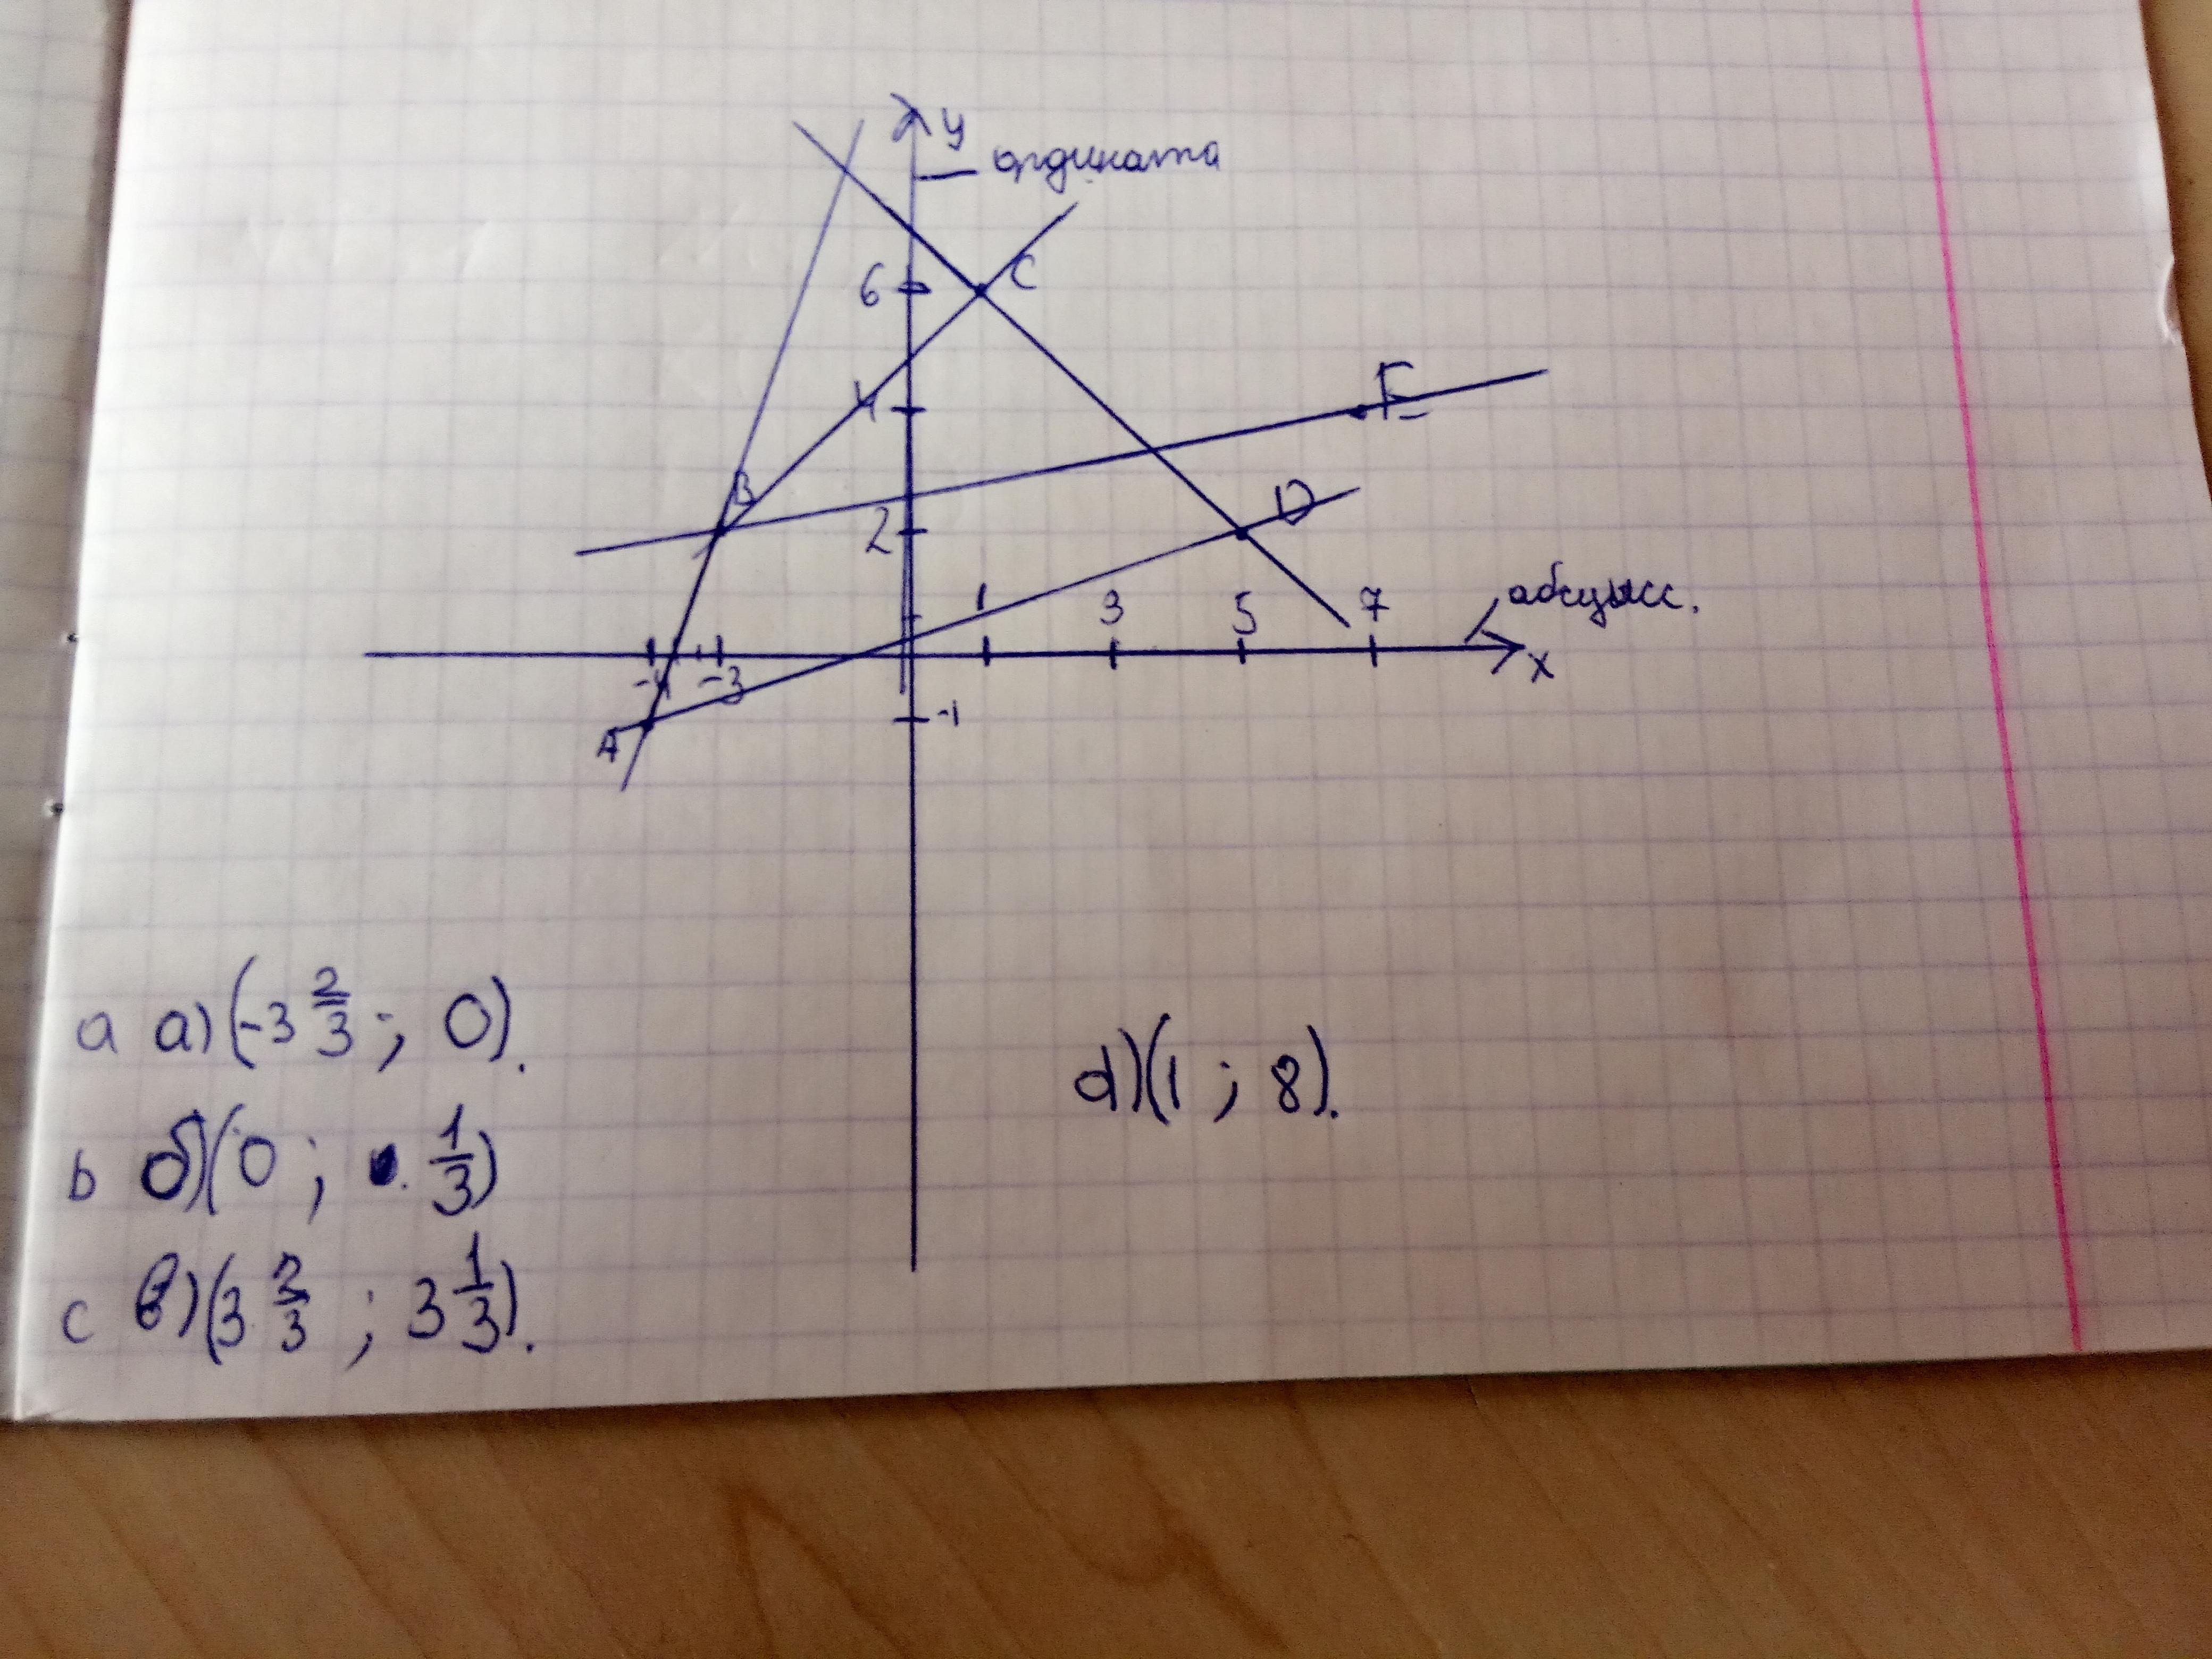 y
ордината
6
C
4
E
B
2
D
1
3
5
7
абсцысс.
-4
-3
x
A
-1
a а) (-3 2/3 ; 0).
d) (1 ; 8).
b б) (0 ; 1/3)
c в) (3 2/3 ; 3 1/3).